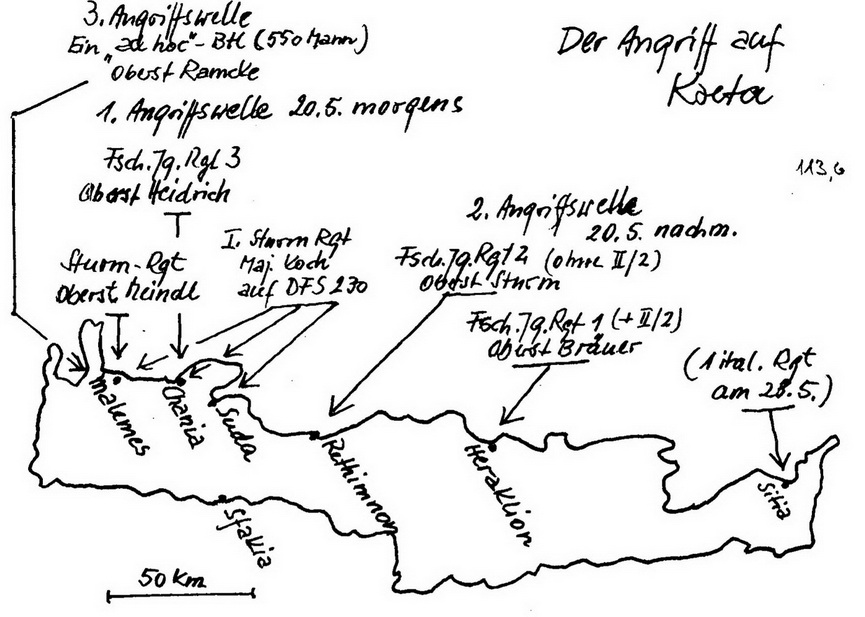 3. Angriffswelle
Ein „ad hoc"-Btl (550 Mann)
Oberst Ramcke
Der Angriff auf
Kreta
1. Angriffswelle 20.5. morgens
113,6
Fsch.Jg.Rgl 3
Oberst Heidrich
2. Angriffswelle
20.5. nachm.
I. Sturm Rgt
Maj. Koch
auf DFS 230
Sturm-Rgt
Oberst Meindl
Fsch.Jg.Rgt 2 (ohne II/2)
Oberst Sturm
Fsch.Jg.Rgt 1 (+ II/2)
Oberst Bräuer
(1 ital. Rgt
am 28.5.)
Malemes
Chania
Suda
Rethimnon
Heraklion
Sitia
Sfakia
50 Km